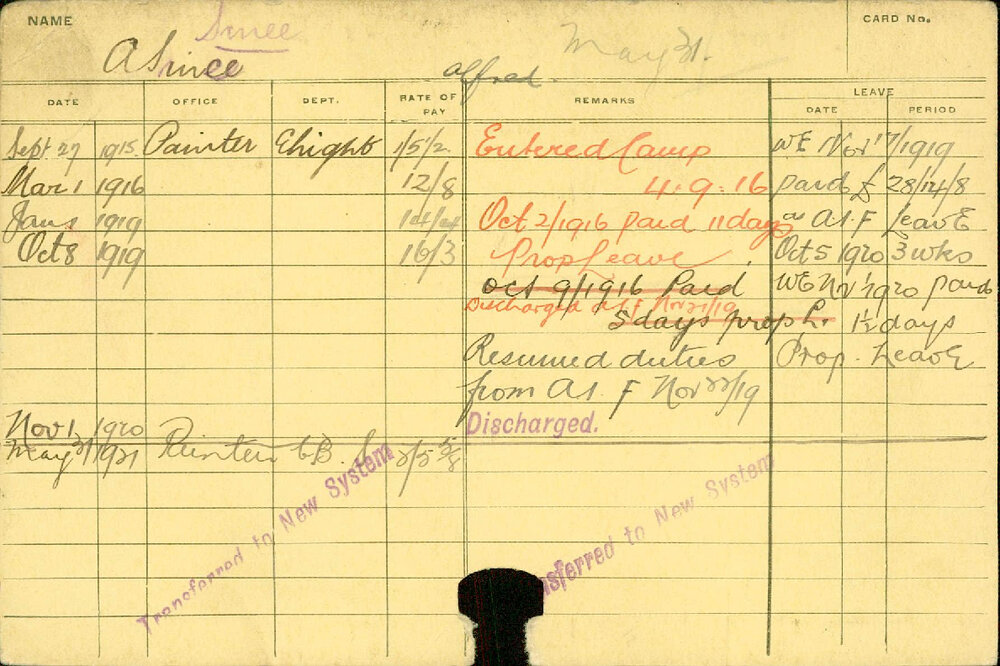 NAME
Smee
A Smee
Alfred.
May 31.
CARD No.
DATE
OFFICE
DEPT.
RATE OF PAY
REMARKS
LEAVE
DATE
PERIOD
Sept 27 1915 Painter Elight 1/5/2
Mar 1 1916 12/8
Jan 1 1919
Oct 8 1919 16/3
Nov 1 1920
May 31 1921 Painter 2/5 5/8
Entered Camp
4.9.16
Oct 2/1916 paid 11 days
Prop Leave
Oct 9/1916 Paid
Discharged A.I.F Nov 21/19
5 days prop L.
Resumed duties
from A.I.F Nov 22/19
Discharged.
WE Nov 17/1919
paid £ 28/14/8
as A.I.F Leave
Oct 5 1920 3 wks
WE Nov 1/1920 paid
1½ days
Prop. Leave
Transferred to New System
nsferred to New System